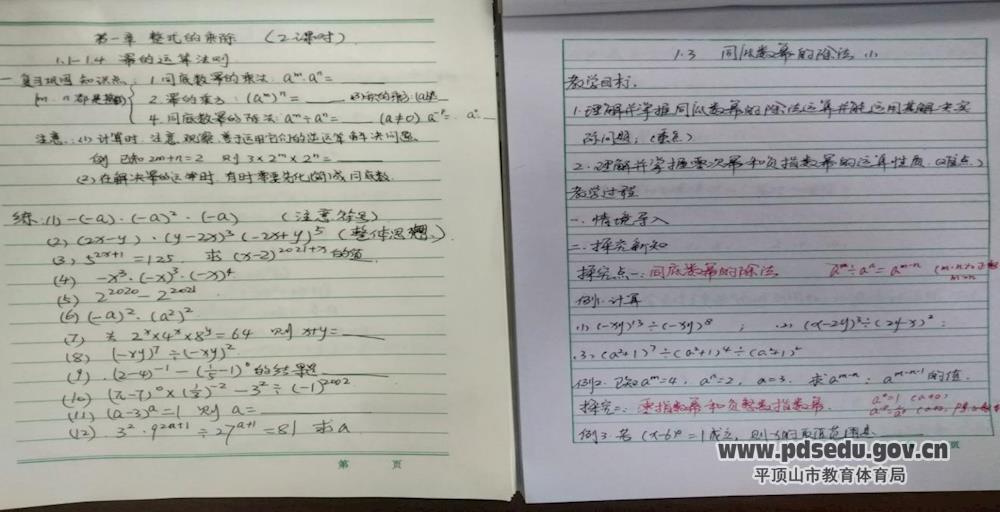 第一章 整式的乘除 (2课时)
1.1-1.4 幂的运算法则
一 复习巩固 知识点: 1.同底数幂的乘法: aᵐ·aⁿ=
2.幂的乘方: (aᵐ)ⁿ=
4.同底数幂的除法: aᵐ÷aⁿ= (a≠0)
注意: (1) 计算时, 注意观察, 解决问题.
例 已知2m+n=2 则3×2ᵐ×2ⁿ=
(2)在解决幂的运算时, 有时需要先化 成同底数.
练: (1) -(-a)·(-a)²·(-a) (注意符号)
(2) (2x-y)·(y-2x)³(-2x+y)⁵ (整体思想)
(3) 5²ˣ⁺¹=125. 求(x-2)²⁰²¹⁺ˣ的值
(4) -x³·(-x)³·(-x)⁴
(5) 2²⁰²⁰-2²⁰²¹
(6) (-a)²·(a²)²
(7) 若 2ˣ×4ˣ×8ʸ=64 则x+y=
(8) (-xy)⁷÷(-xy)²
(9) (2-4)⁻¹-(1/5-1)⁰的结果是
(10) (π-7)⁰×(1/2)⁻²-3²÷(-1)²⁰⁰²
(11) (a-3)ᵃ=1 则a=
(12) 3²·9²ᵃ⁺¹÷27ᵃ⁺¹=81 求a
第 页
1.3 同底数幂的除法
教学目标:
1.理解并掌握同底数幂的除法运算并能运用其解决实
际问题; (重点)
2.理解并掌握零次幂和负指数幂的运算性质. (难点)
教学过程
一. 情境导入
二. 探究新知
探究点一: 同底数幂的除法. aᵐ÷aⁿ=aᵐ⁻ⁿ
例1.计算
(1) (-xy)¹³÷(-xy)⁸ ; (2) (x-2y)³÷(2y-x)² ;
(3) (a²+1)⁷÷(a²+1)⁴÷(a²+1)²
例2. 已知aᵐ=4, aⁿ=2, a=3. 求aᵐ⁻ⁿ⁻¹的值.
探究二: 零指数幂和负整数指数幂. a⁰=1 (a≠0)
例3.若(x-6)⁰=1成立, 则x的取值范围是
页
www.pdsedu.gov.cn
平顶山市教育体育局